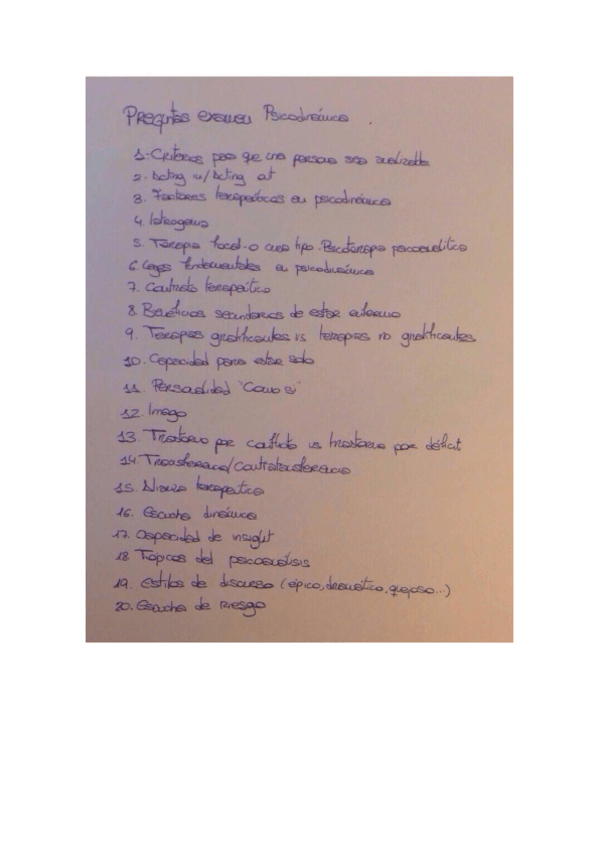 Preguntas examen Psicodinámica.
1-Criterios para que una persona sea analizable
2. Acting in/Acting out
3. Factores terapeúticos en psicodinámica
4. Iatrogenia
5. Terapia focal-o otro tipo. Psicoterapia psicoanalítica
6. Leyes fundamentales en psicodinámica
7. Contrato terapeútico
8. Beneficios secundarios de estar enfermo
9. Terapias gratificantes vs terapias no gratificantes
10. Capacidad para estar solo
11. Personalidad "Como si"
12. Imago
13. Trastorno por conflicto vs trastorno por déficit
14. Transferencia/Contratransferencia
15. Alianza terapeútica
16. Escucha dinámica
17. Capacidad de insight
18. Tópicas del psicoanálisis
19. Estilos de discurso (épico, dramático, quejoso...)
20. Escucha de riesgo